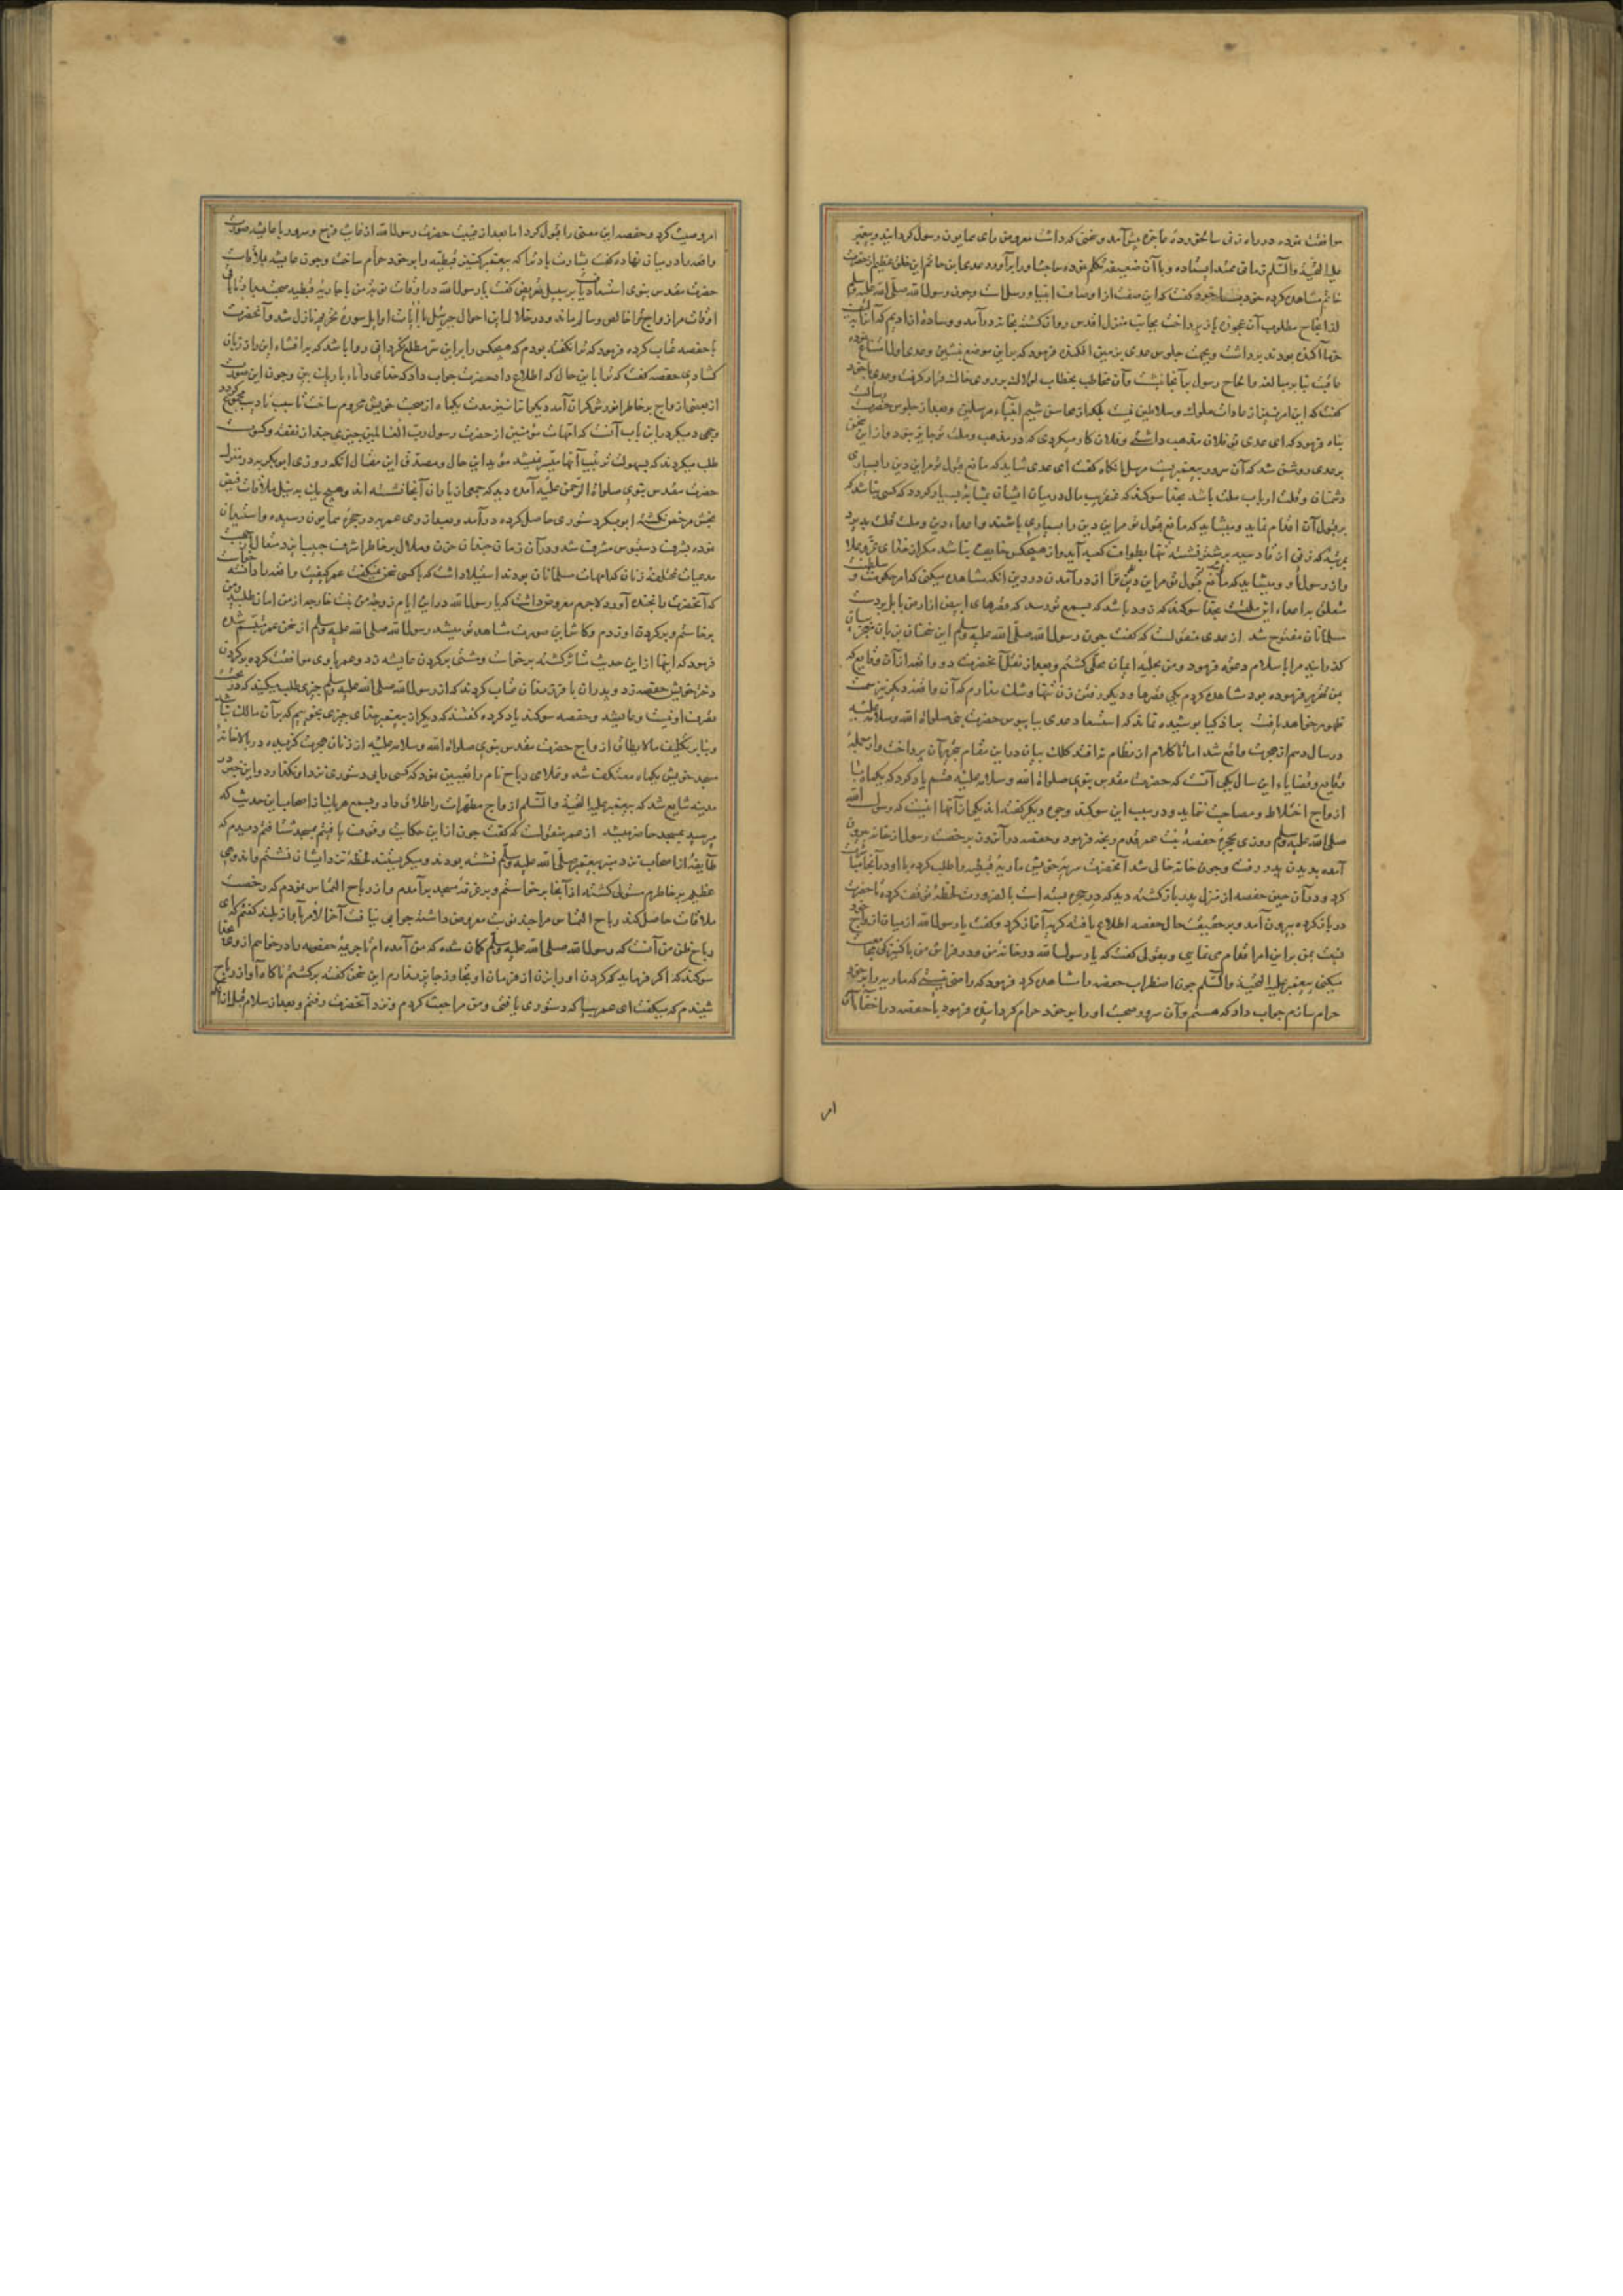 موافقت نموده در راه زنی سالخورده عاجزه پیش آمد و سخنی که داشت معروض رای همایون رسول گردانید و پیغمبر
علیه التحیة والسلام زمانی ممتد ایستاده و با آن ضعیفه تکلم نموده حاجت او را برآورد عدی ابن حاتم این خلق عظیم از حضرت
خاتم مشاهده کرده خود بخود گفت که این صفت از اوصاف انبیا و رسل است و چون رسول الله صلی الله علیه وسلم
از انجاح مطلوب آن عجوزه باز پرداخت بجانب منزل اقدس روان گشته بخانه درآمد و وساده از ادیم که از لیف
خرما آکنده بودند برداشت و بجهت جلوس عدی بر زمین افکنده فرمود که براین موضع بنشین و عدی اولا امتناع نموده
عاقبت بنابر مبالغه والحاح رسول بر آنجا نشست و آن مخاطب بخطاب لولاک بر روی خاک قرار گرفت و عدی با خود
گفت که این امر نیز از عادات ملوک و سلاطین نیست بلکه از محاسن شیم انبیاء مرسلین و بعد از جلوس حضرت رسالت
پناه فرمود که ای عدی تو فلان مذهب داشتی و فلان کار میکردی که در مذهب و ملت تو جایز نبود و از این سخن
بر عدی روشن شد که آن سرور پیغمبریست مرسل آنگاه گفت ای عدی شاید که مانع قبول تو مر این دین را بسیاری
دشمنان و قلت ارباب ملت باشد بخدا سوگند که عنقریب مال در میان ایشان بمثابه بسیار گردد که کسی نباشد که
بر قبول آن اقدام نماید و میشاید که مانع قبول تو مر این دین را بسیاری باشند و اعداء دین و ملت قلت پذیرد
بمرتبه که زنی از قادسیه بر شتر نشسته تنها بطواف کعبه آید و از هیچکس خایف نباشد مگر از خدای عز وعلا
و از رسول او و میشاید که مانع قبول تو مر این دین را از درآمدن در دین آنکه مشاهده میکنی که امر حکومت و سلطنت
متعلق به اعداء این ملتست بخدا سوگند که زود باشد که بسمع تو رسد که قصرهای ابیض از ارض بابل بر دست
مسلمانان مفتوح شد از عدی منقولست که گفت چون رسول الله صلی الله علیه وسلم این سخنان بر زبان معجز بیان
گذرانید مرا باسلام دعوت فرمود و من بحلیه ایمان محلی گشتم و بعد از نقل آنحضرت دو واقعه از آن وقایع که
من تقریر فرموده بود مشاهده کردم یکی قصرها و دیگر رفتن زن تنها و شک ندارم که آن واقعه دیگر نیز سمت
ظهور خواهد یافت بر اذکیا پوشیده نماند که استسعاد عدی بپابوس حضرت نبی صلوات الله وسلامه علیه
در سال دهم از هجرت واقع شد اما تا کلام از نظام نه افتد کلک بیان در این مقام بتحریر آن پرداخت و از جمله
وقایع و قضایاء این سال یکی آنست که حضرت مقدس نبوی صلوات الله وسلامه علیه قسم یاد کرد که یکماه با
ازواج اختلاط و مصاحبت ننماید و در سبب این سوگند وجوه دیگر گفته اند یکی از آنها اینست که رسول الله
صلی الله علیه وسلم روزی بحجره حفصه بنت عمر قدم رنجه فرمود و حفصه در آن روز برخصت رسول از خانه بیرون
آمده بدیدن پدر رفت و چون خانه خالی شد آنحضرت سریه خویش ماریه قبطیه را طلب کرده با او در آنجا مباشرت
کرد و در آن حین حفصه از منزل پدر بازگشته دید که در حجره بسته است بالضرورت لحظه توقف کرده تا حضرت
در باز کرده بیرون آمد و بر حقیقت حال حفصه اطلاع یافته گریه آغاز کرد و گفت یا رسول الله از میان ازواج خود
نسبت بمن براین امر اقدام می نمایی و بقولی گفت که یا رسول الله در خانه من و در فراش من با کنیزکی صحبت
میکنی پیغمبر علیه التحیة والسلام چون اضطراب حفصه را مشاهده کرد فرمود که راضی نیستی که ماریه را بر خود
حرام سازم جواب داد که هستم و آن سرور صحبت او را بر خود حرام گردانیده فرمود با حفصه در اخفاء آن
امر
امر وصیت کرد و حفصه این معنی را قبول کرد اما بعد از غیبت حضرت رسول الله از غایت فرح و سرور با عایشه صورت
واقعه را در میان نهاده گفت بشارت باد ترا که پیغمبر کنیز قبطیه را بر خود حرام ساخت و چون عایشه بملاقات
حضرت مقدس نبوی استسعاد یافت بر سبیل تعریض گفت یا رسول الله در اوقات نوبه من با ماریه قبطیه صحبت میداری تا باقی
اوقات مر ازواج ترا خالص و سالم ماند و در خلال این احوال جبرئیل با آیات اوایل سوره تحریم نازل شد و آنحضرت
با حفصه عتاب کرده فرمود که ترا نگفته بودم که هیچکس را بر این سر مطلع نگردانی روا باشد که به افشاء این راز زبان
گشادی حفصه گفت که ترا باین حال که اطلاع داد حضرت جواب داد که خدای دانا و با ریاست من و چون این صورت
از بعضی ازواج بر خاطر انورش گران آمد دیگر تا نیز مدت یکماه از صحبت خویش محروم ساخت تا سبب تأدیب مجموع گردد
وجهی دیگر در این باب آنست که امهات مؤمنین از حضرت رسول رب العالمین چیزی چند از نفقه و کسوت
طلب میکردند که بسهولت ترتیب آنها میسر نمیشد مؤید این حال و مصدق این مقال آنکه روزی ابوبکر بدر منزل
حضرت مقدس نبوی صلوات الرحمن علیه آمده دید که جمعی از یاران آنجا نشسته اند و هیچ یک به نیل ملاقات فیض
بخش مرخص نگشته ابوبکر دستوری حاصل کرده درآمد و بعد از وی عمر بدر حجره همایون رسیده و استیذان
نموده بشرف دستبوس مشرف شد و در آن زمان چندان حزن و ملال بر خاطر اشرف حبیب ایزد متعال از جهت
مدعیات مختلفه زنان که امهات مسلمانان بودند استیلا داشت که با کسی سخن نمیگفت عمر کیفیت واقعه را دانسته خواست
که آنحضرت را بخنده آورد لاجرم معروض داشت که یا رسول الله در این ایام زوجه من بنت خارجه از من امان طلبید و من
برخاستم و بر گردن او زدم و کاش این صورت مشاهده تو میشد رسول الله صلی الله علیه وسلم از سخن عمر متبسم شده
فرمود که اینها از این حدیث متأثر گشته برخاست و مشتی بر گردن عایشه زد و عمر با وی موافقت کرده بر گردن
دختر خویش حفصه زد و پدران با فرزندان عتاب کردند که از رسول الله صلی الله علیه وسلم چیزی طلب میکنید که در تحت
تصرف او نیست و عایشه و حفصه سوگند یاد کرده گفتند که دیگر از پیغمبر خدای چیزی نجوییم که بر آن مالک نباشد
و بنابر تکلیف مالایطاق ازواج حضرت مقدس نبوی صلوات الله وسلامه علیه از زنان هجرت گزیده در بالاخانه
مسجد خویش یکماه معتکف شد و غلامی رباح نام را تعیین نمود که کسی را بی دستوری نزد او نگذارد و این خبر در
مدینه شایع شد که پیغمبر علیه التحیة والسلام ازواج مطهرات را طلاق داد و بسمع هر یک از اصحاب این حدیث که
میرسید بمسجد حاضر میشد از عمر منقولست که گفت چون از این حکایت وقوف یافتم بمسجد شتافتم دیدم که
طایفه از اصحاب نزد منبر پیغمبر صلی الله علیه وسلم نشسته بودند و میگریستند لحظه نزد ایشان نشستم و اندوهی
عظیم بر خاطرم مستولی گشته از آنجا برخاستم و بر غرفه مسجد برآمدم و از رباح التماس نمودم که رخصت
ملاقات حاصل کند رباح التماس مرا چند نوبت معروض داشته جوابی نیافت آخر الامر بآواز بلند گفتم که ای
رباح ظن من آنست که رسول الله صلی الله علیه وسلم گمان شده که من آمده ام تا جریمه حفصه را درخواهم از وی بخدا
سوگند که اگر فرماید که گردن او را بزن از فرمان او تجاوز جایز ندارم این سخن گفته برگشتم ناگاه آواز رباح
شنیدم که میگفت ای عمر بیا که دستوری یافتی و من مراجعت کردم و نزد آنحضرت رفتم و بعد از سلام قبل از آنکه